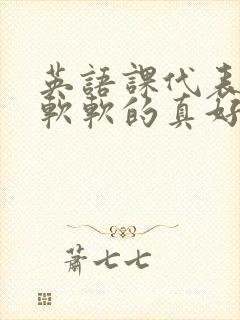 英語課代表
軟軟的真好
蕭七七